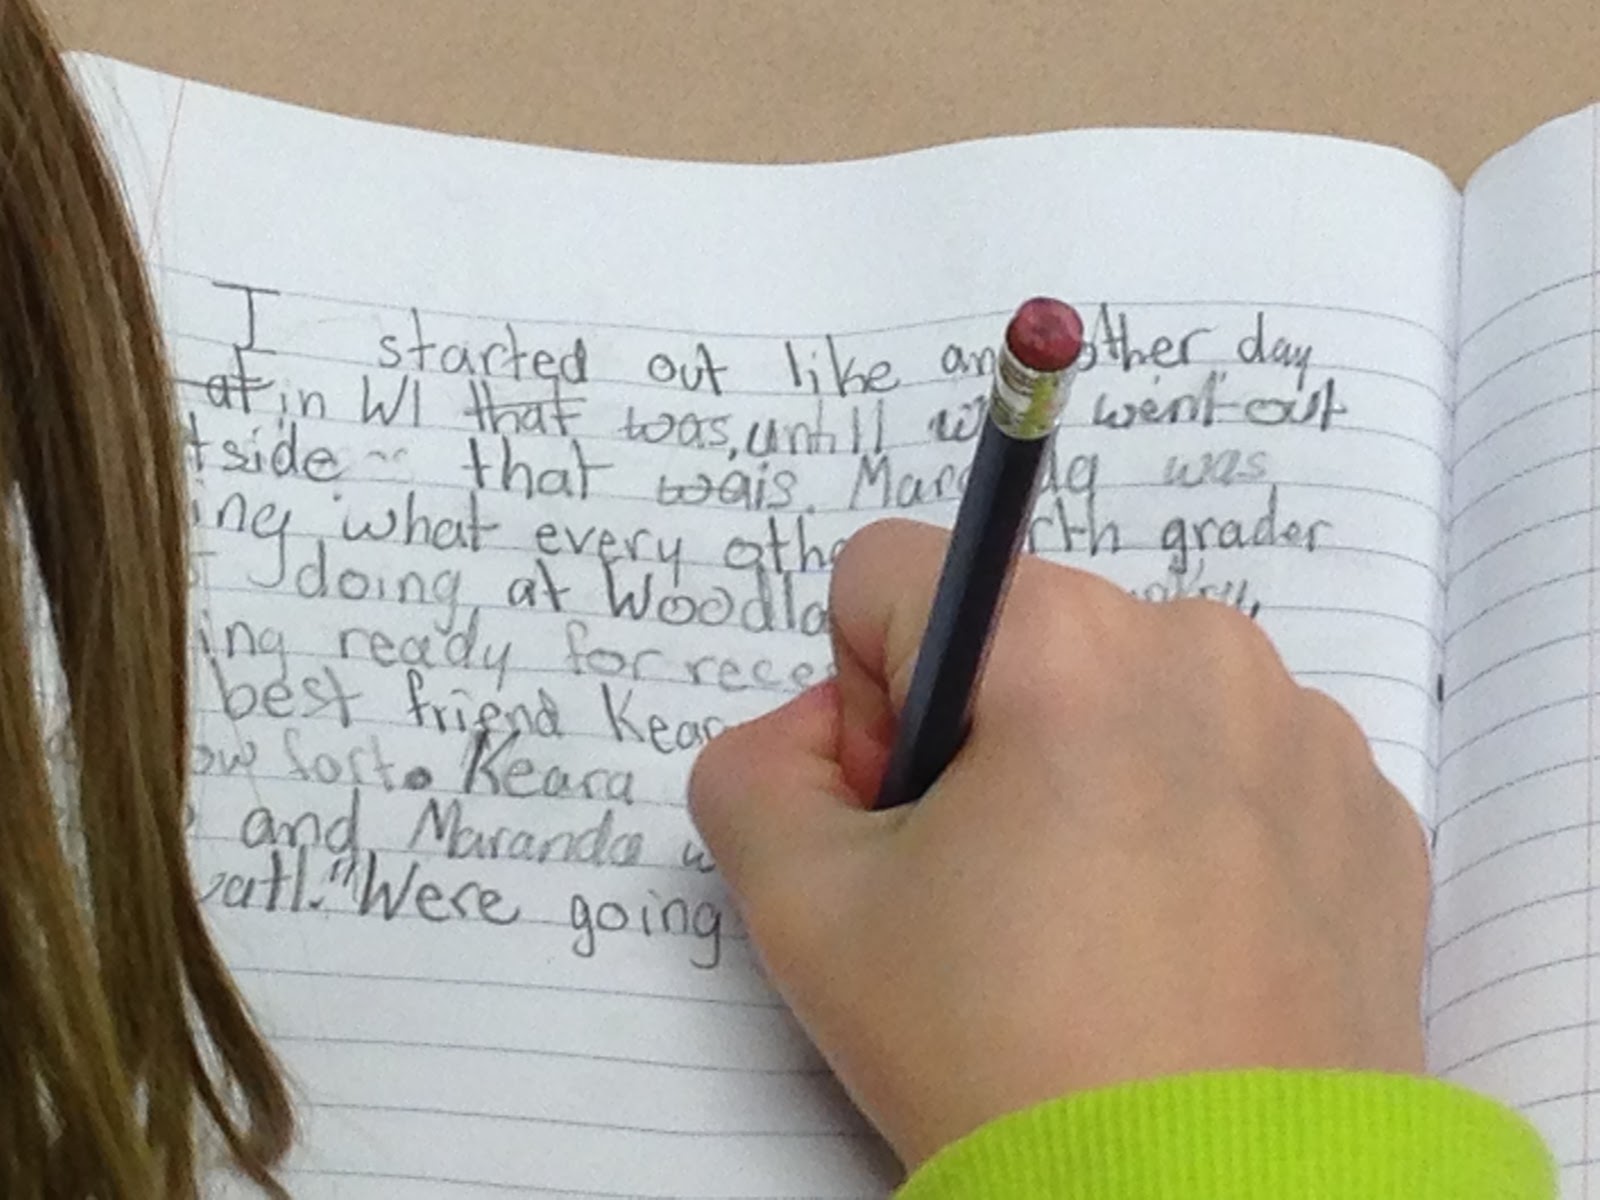 I started out like another day
at in WI that was, untill we went out
tside that wais. Maranda was
ing what every other fourth grader
doing at Woodla
ing ready for rece
best friend Kear
ow fort. Keara
and Maranda w
"Were going